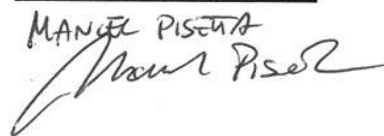 MANUEL PISETTA
Manuel Pisetta